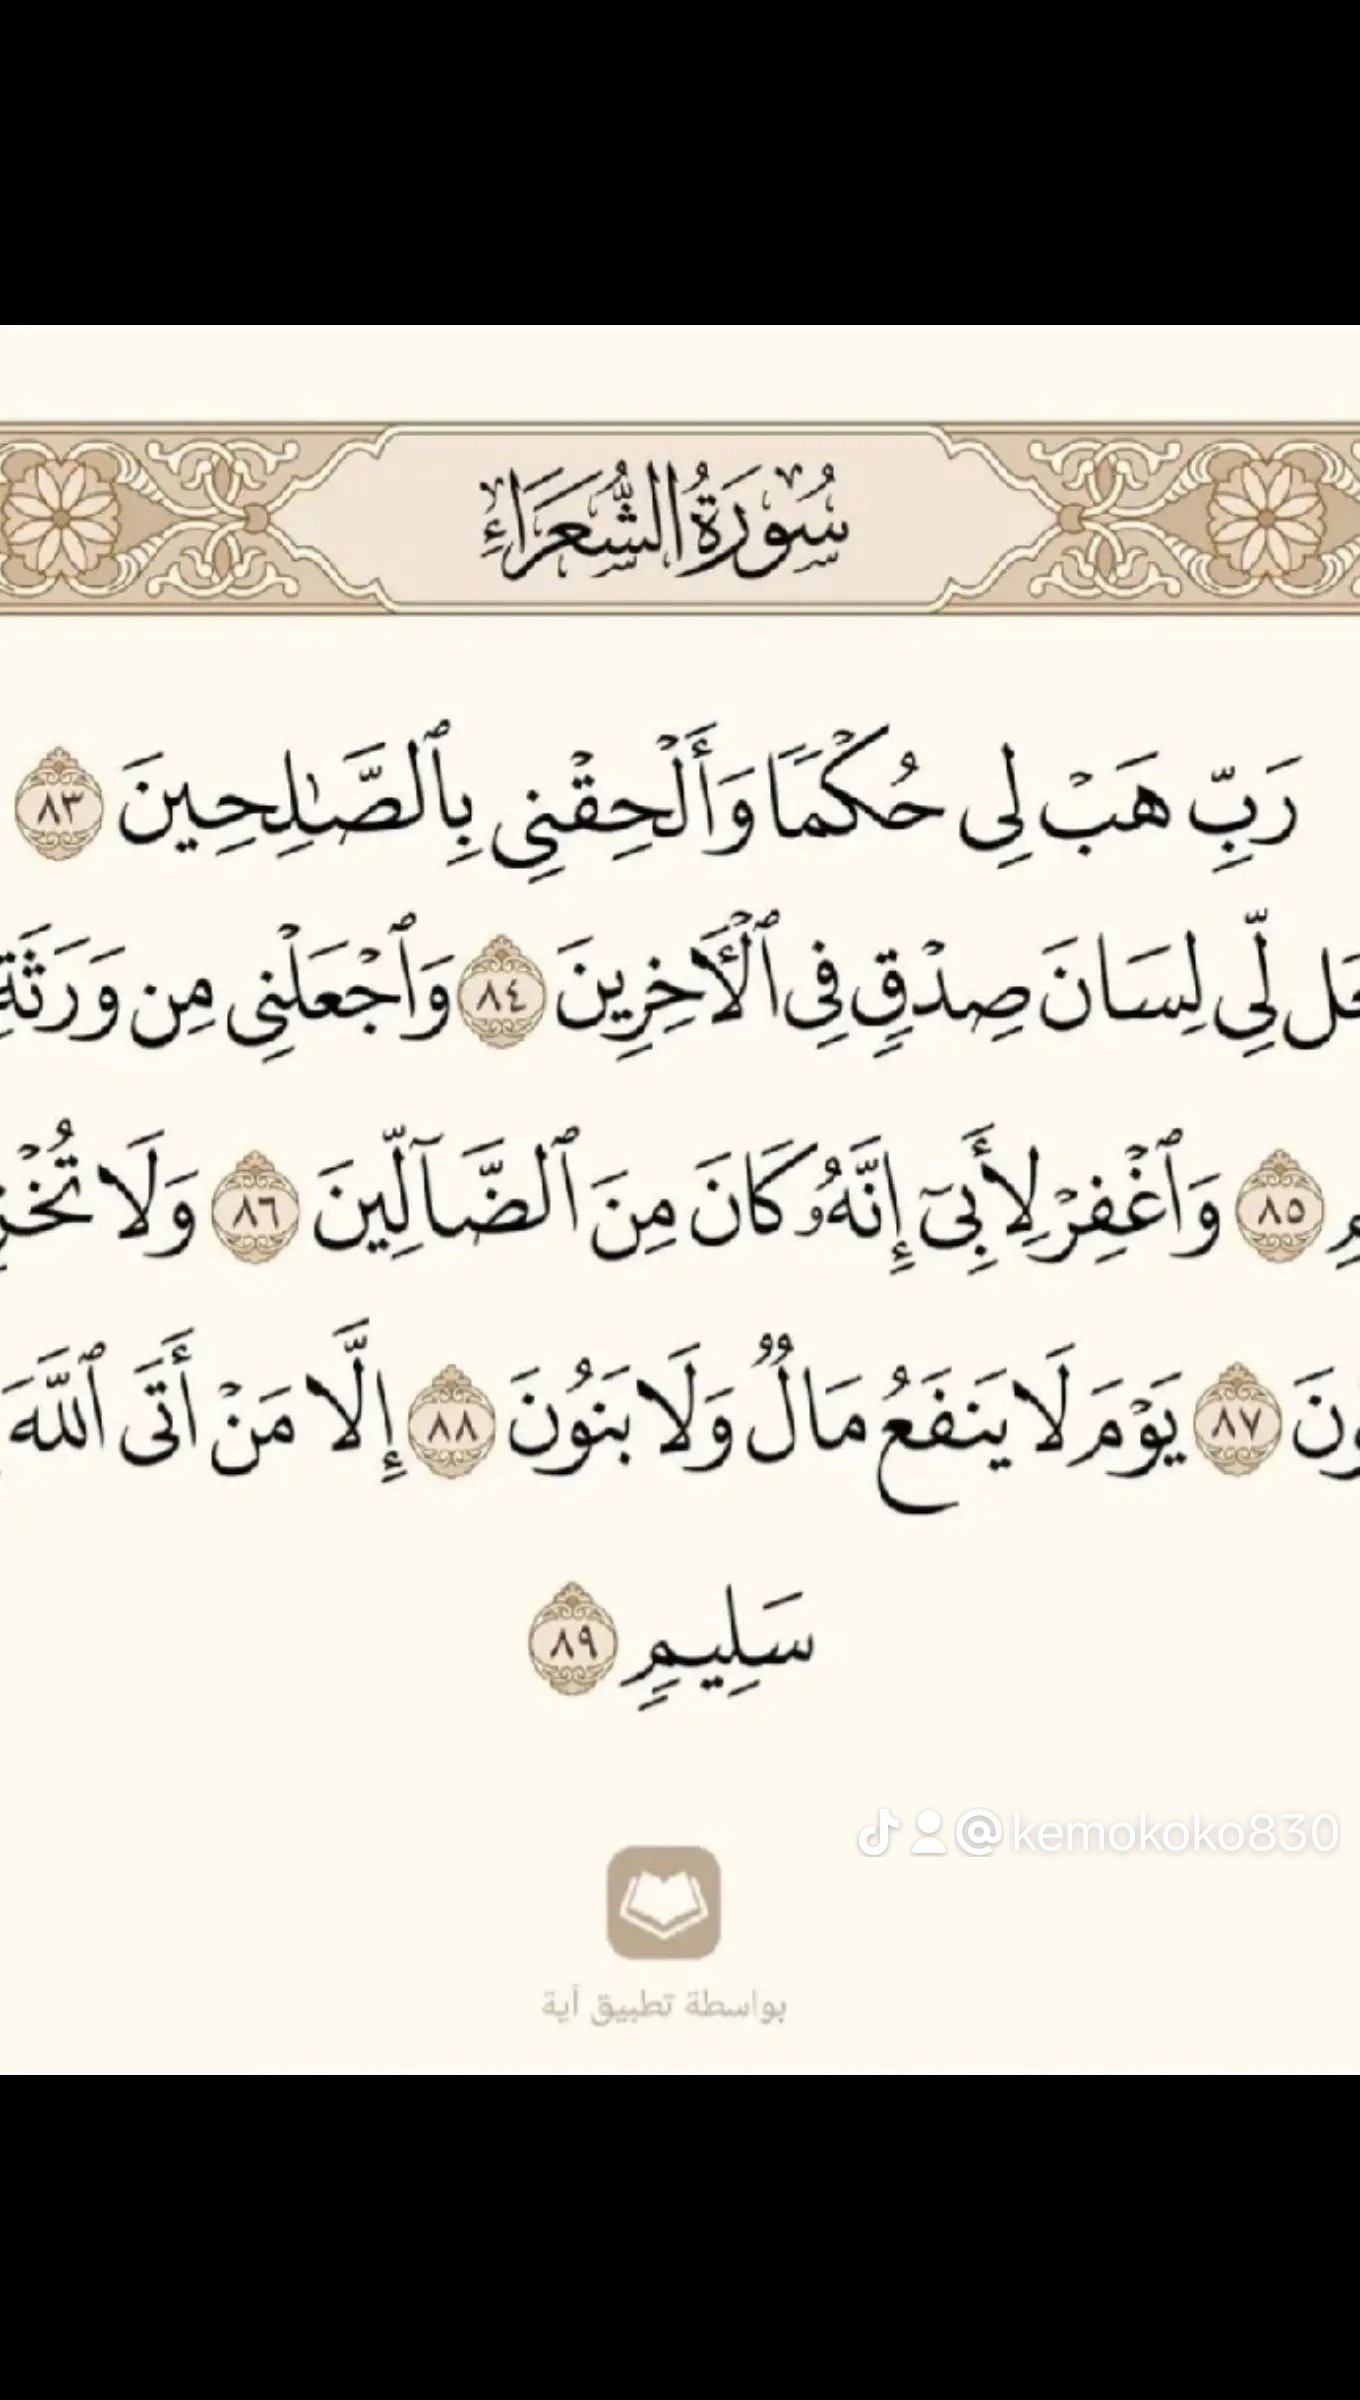 سُورَةُ الشُّعَرَاءِ
رَبِّ هَبْ لِى حُكْمًا وَأَلْحِقْنِى بِٱلصَّـٰلِحِينَ ٨٣
عَل لِّى لِسَانَ صِدْقٍ فِى ٱلْـَٔاخِرِينَ ٨٤ وَٱجْعَلْنِى مِن وَرَثَةِ
مِ ٨٥ وَٱغْفِرْ لِأَبِىٓ إِنَّهُۥ كَانَ مِنَ ٱلضَّآلِّينَ ٨٦ وَلَا تُخْزِ
ونَ ٨٧ يَوْمَ لَا يَنفَعُ مَالٌ وَلَا بَنُونَ ٨٨ إِلَّا مَنْ أَتَى ٱللَّهَ
سَلِيمٍ ٨٩
@kemokoko830
بواسطة تطبيق آية